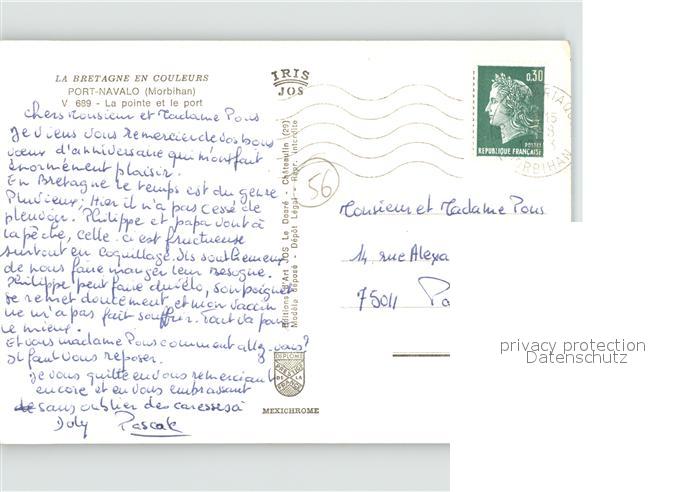 LA BRETAGNE EN COULEURS
PORT-NAVALO (Morbihan)
V 689 - La pointe et le port
Chers Monsieur et Madame Pons
Je viens vous remercier de vos bons
vœux d'anniversaire qui m'ont fait
énormément plaisir.
En Bretagne le temps est du genre
Pluvieux; Hier il n'a pas cessé de
pleuvoir. Philippe et papa vont à
la pêche, celle-ci est fructueuse
surtout en coquillage. Ils sont heureux
de nous faire manger leur besogne.
Philippe peut faire du vélo, son poignet
se remet doucement, et mon vaccin
ne m'a pas fait souffrir. Tout va pour
le mieux.
Et vous madame Pons comment allez-vous?
Il faut vous reposer.
Je vous quitte en vous remerciant
encore et en vous embrassant
sans oublier des caresses à
Doly Pascale
IRIS
JOS
Editions d'Art JOS Le Doaré - Châteaulin (29)
Modèle déposé - Dépôt Légal - Repr. interdite
DIPLOME
MEXICHROME
56
0,30
POSTES
REPUBLIQUE FRANÇAISE
MORBIHAN
Monsieur et Madame Pons
14 rue Alexa
75011 Pa
privacy protection
Datenschutz